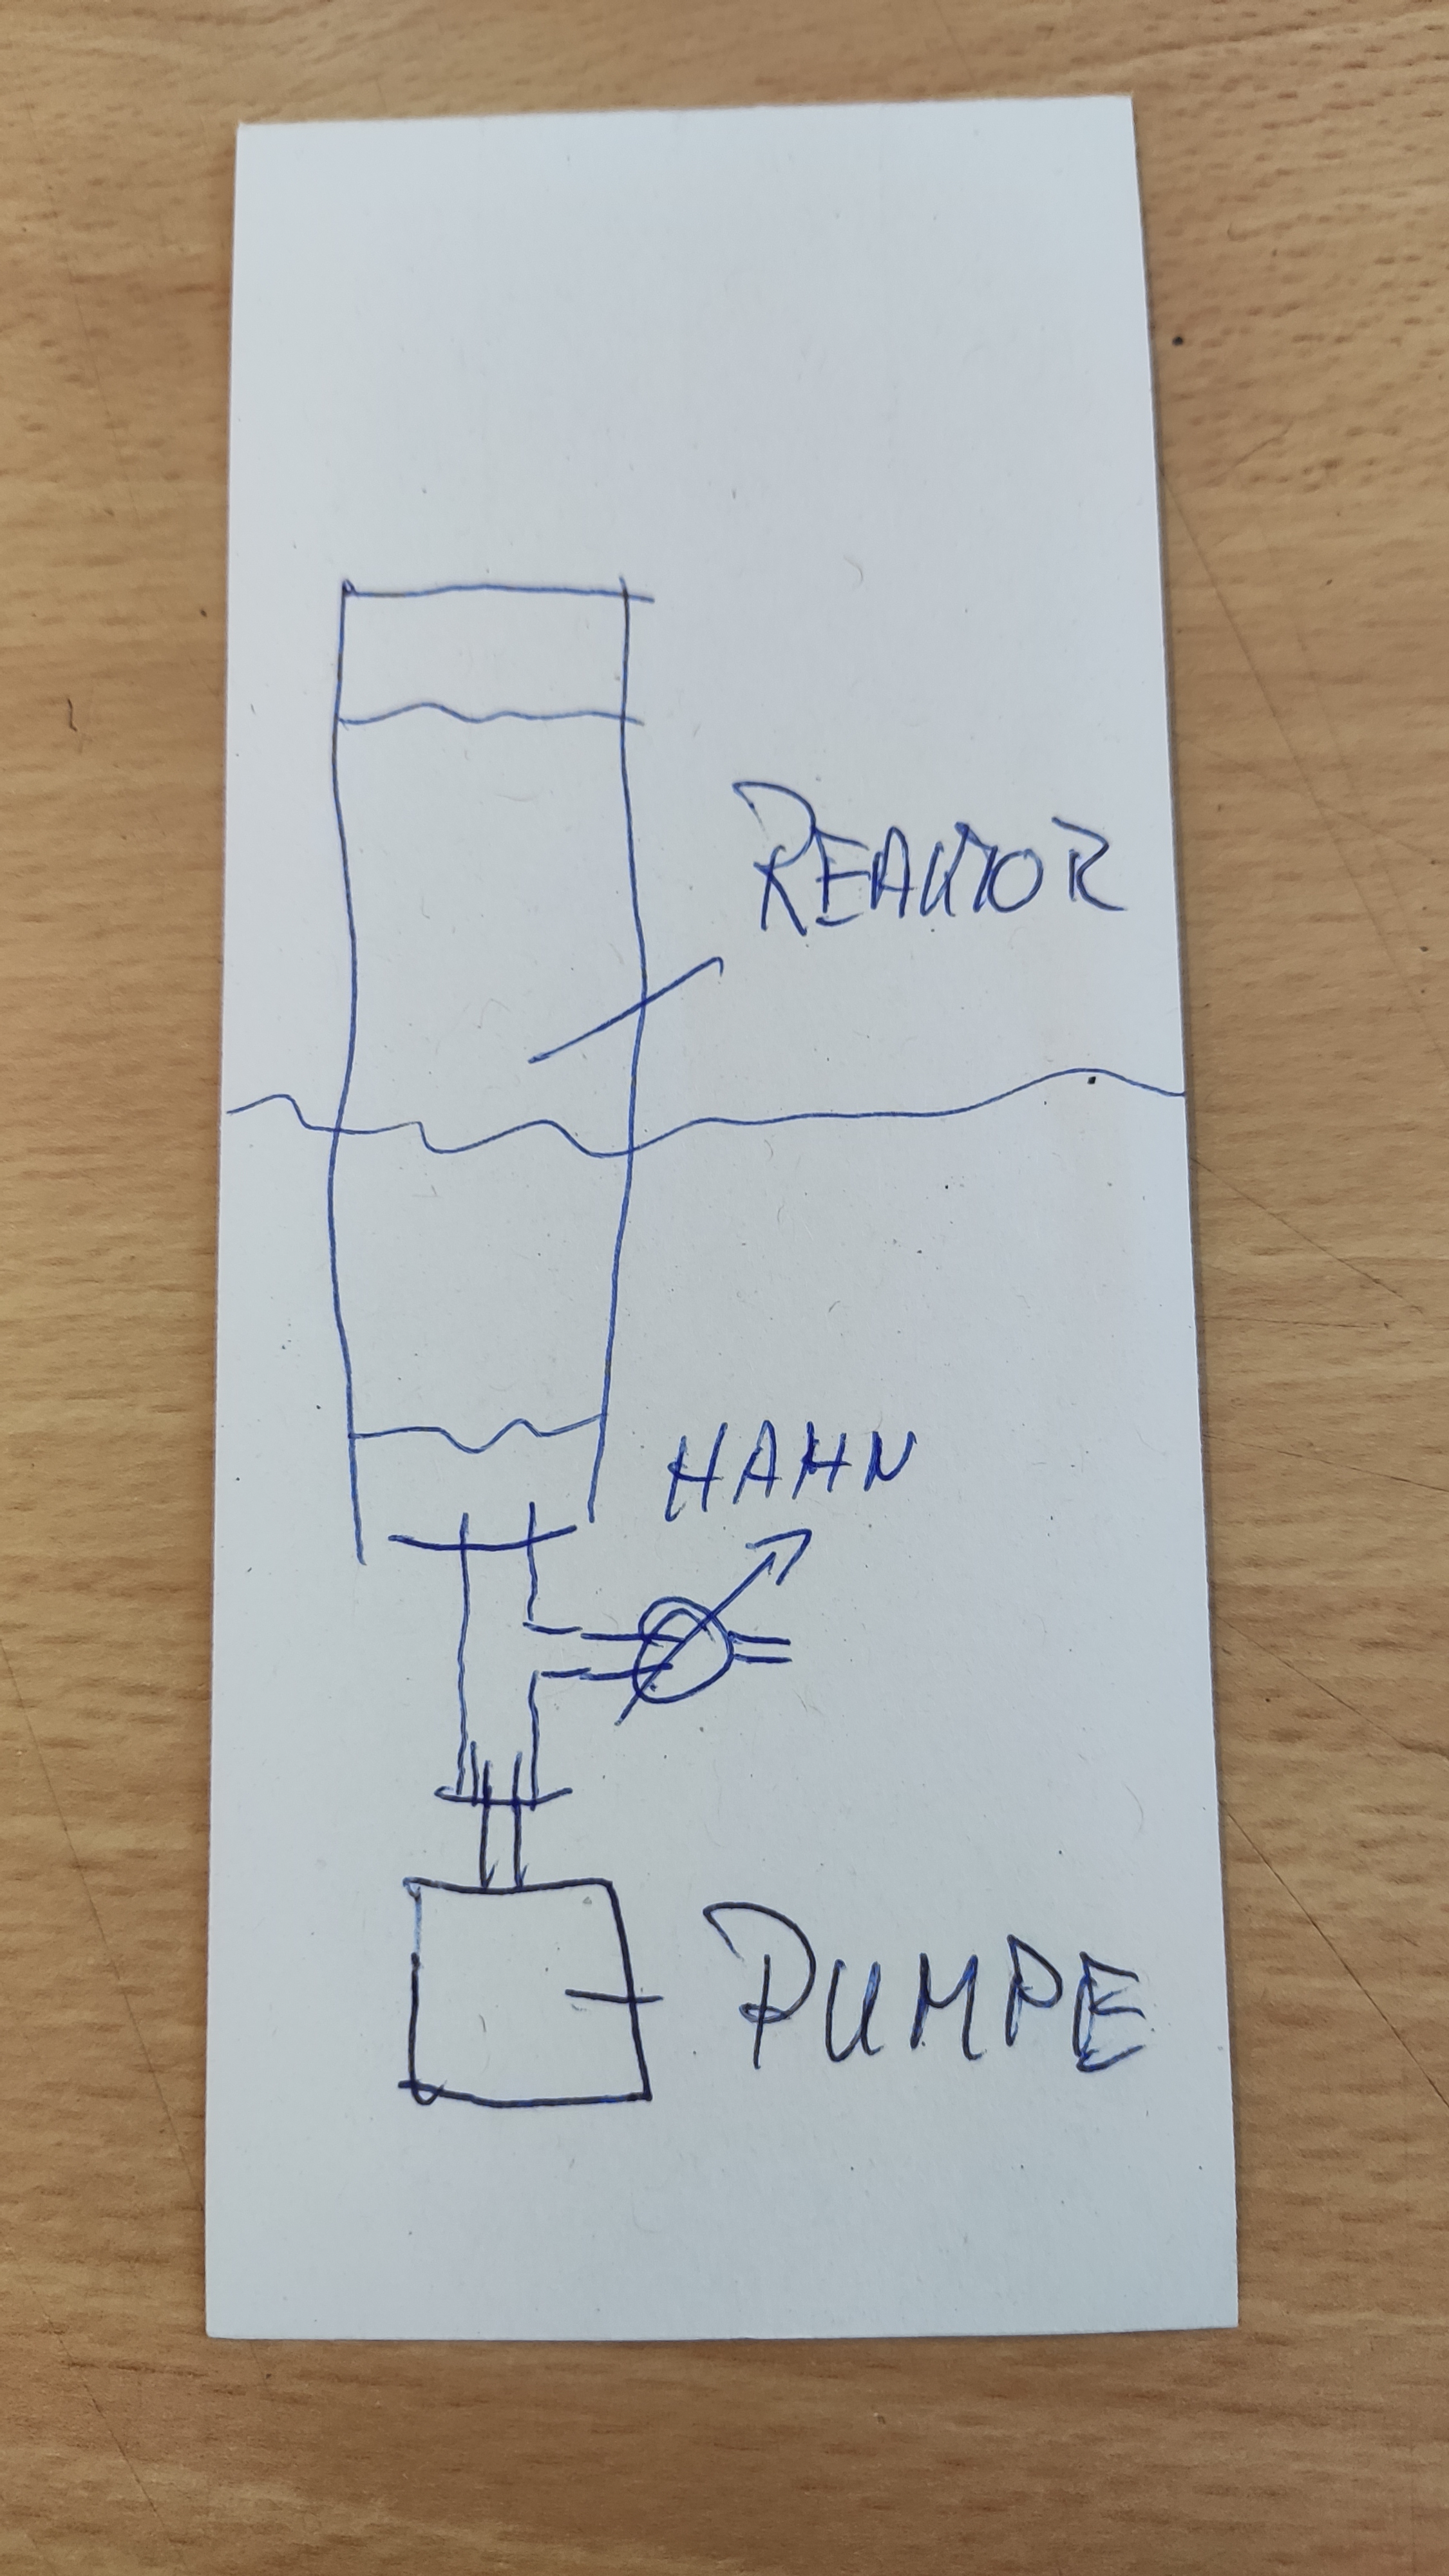 REAKTOR
HAHN
PUMPE